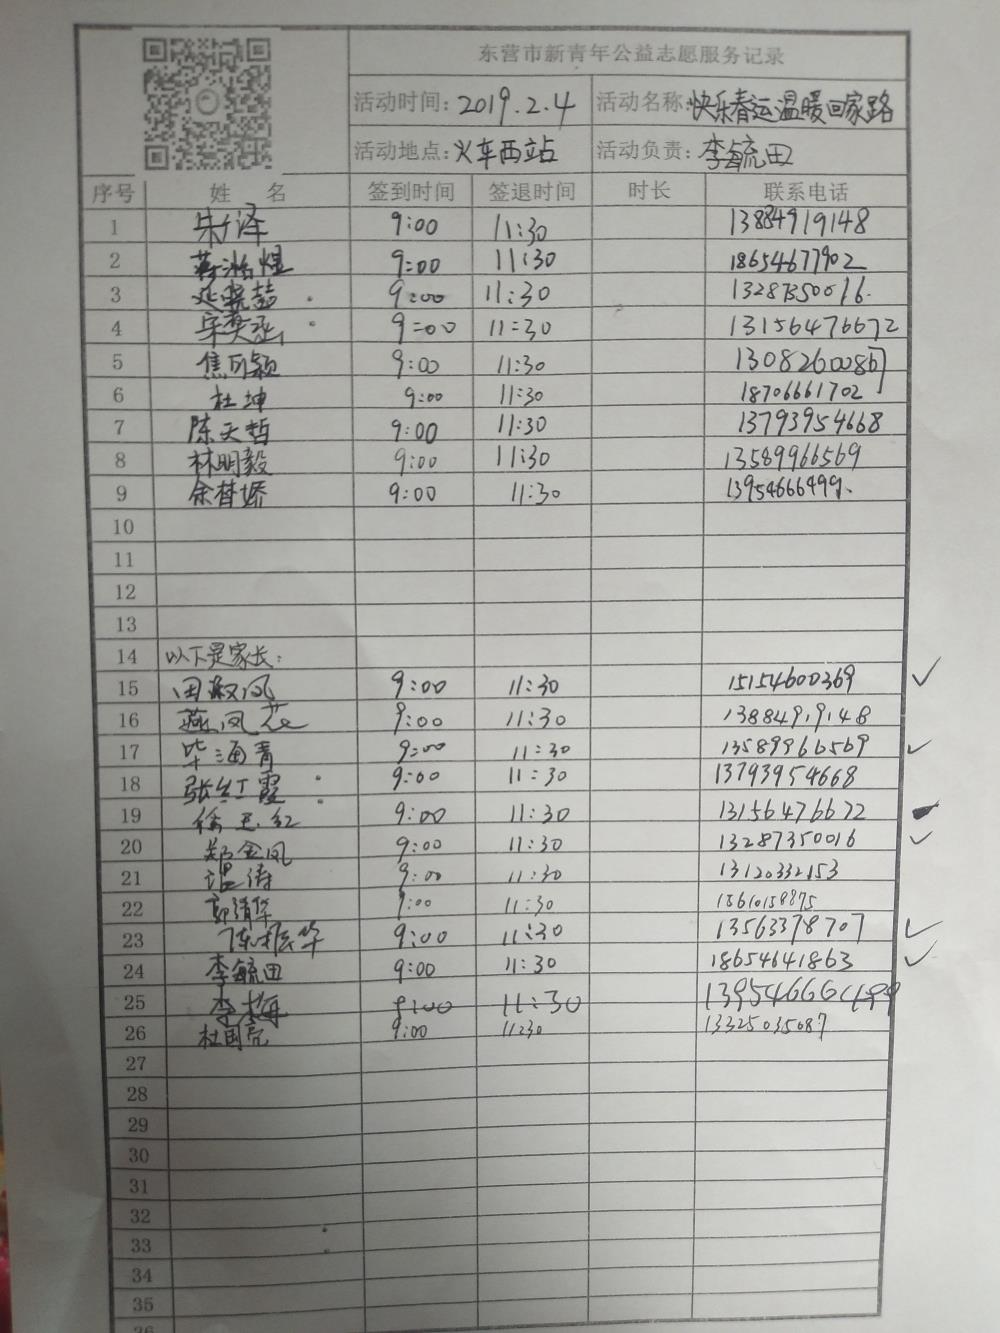 东营市新青年公益志愿服务记录
活动时间: 2019.2.4 活动名称: 快乐春运温暖回家路
活动地点: 火车西站 活动负责: 李毓田
序号 姓 名 签到时间 签退时间 时长 联系电话
1 朱泽 9:00 11:30 13884919148
2 9:00 11:30 18654677902
3 延晓喆 9:00 11:30 13287350016.
4 9:00 11:30 13156476672
5 焦可颖 9:00 11:30
6 杜坤 9:00 11:30 18706661702
7 陈天哲 9:00 11:30 13793954668
8 林明毅 9:00 11:30 13589966569
9 余梦娇 9:00 11:30 13954666499.
10
11
12
13
14 以下是家长:
15 田淑凤 9:00 11:30 15154600369 ✓
16 燕凤芝 9:00 11:30 13884919148
17 毕海青 9:00 11:30 13589966569 ✓
18 张红霞 9:00 11:30 13793954668
19 徐玉红 9:00 11:30 13156476672
20 郑金凤 9:00 11:30 13287350016 ✓
21 温涛 9:00 11:30 13120332153
22 郭清华 9:00 11:30
23 陈振华 9:00 11:30 13563378707 ✓
24 李毓田 9:00 11:30 18654641863 ✓
25 李梅 9:00 11:30 13954666499
26 杜国亮 9:00 11:30 13325035087
27
28
29
30
31
32
33
34
35
36